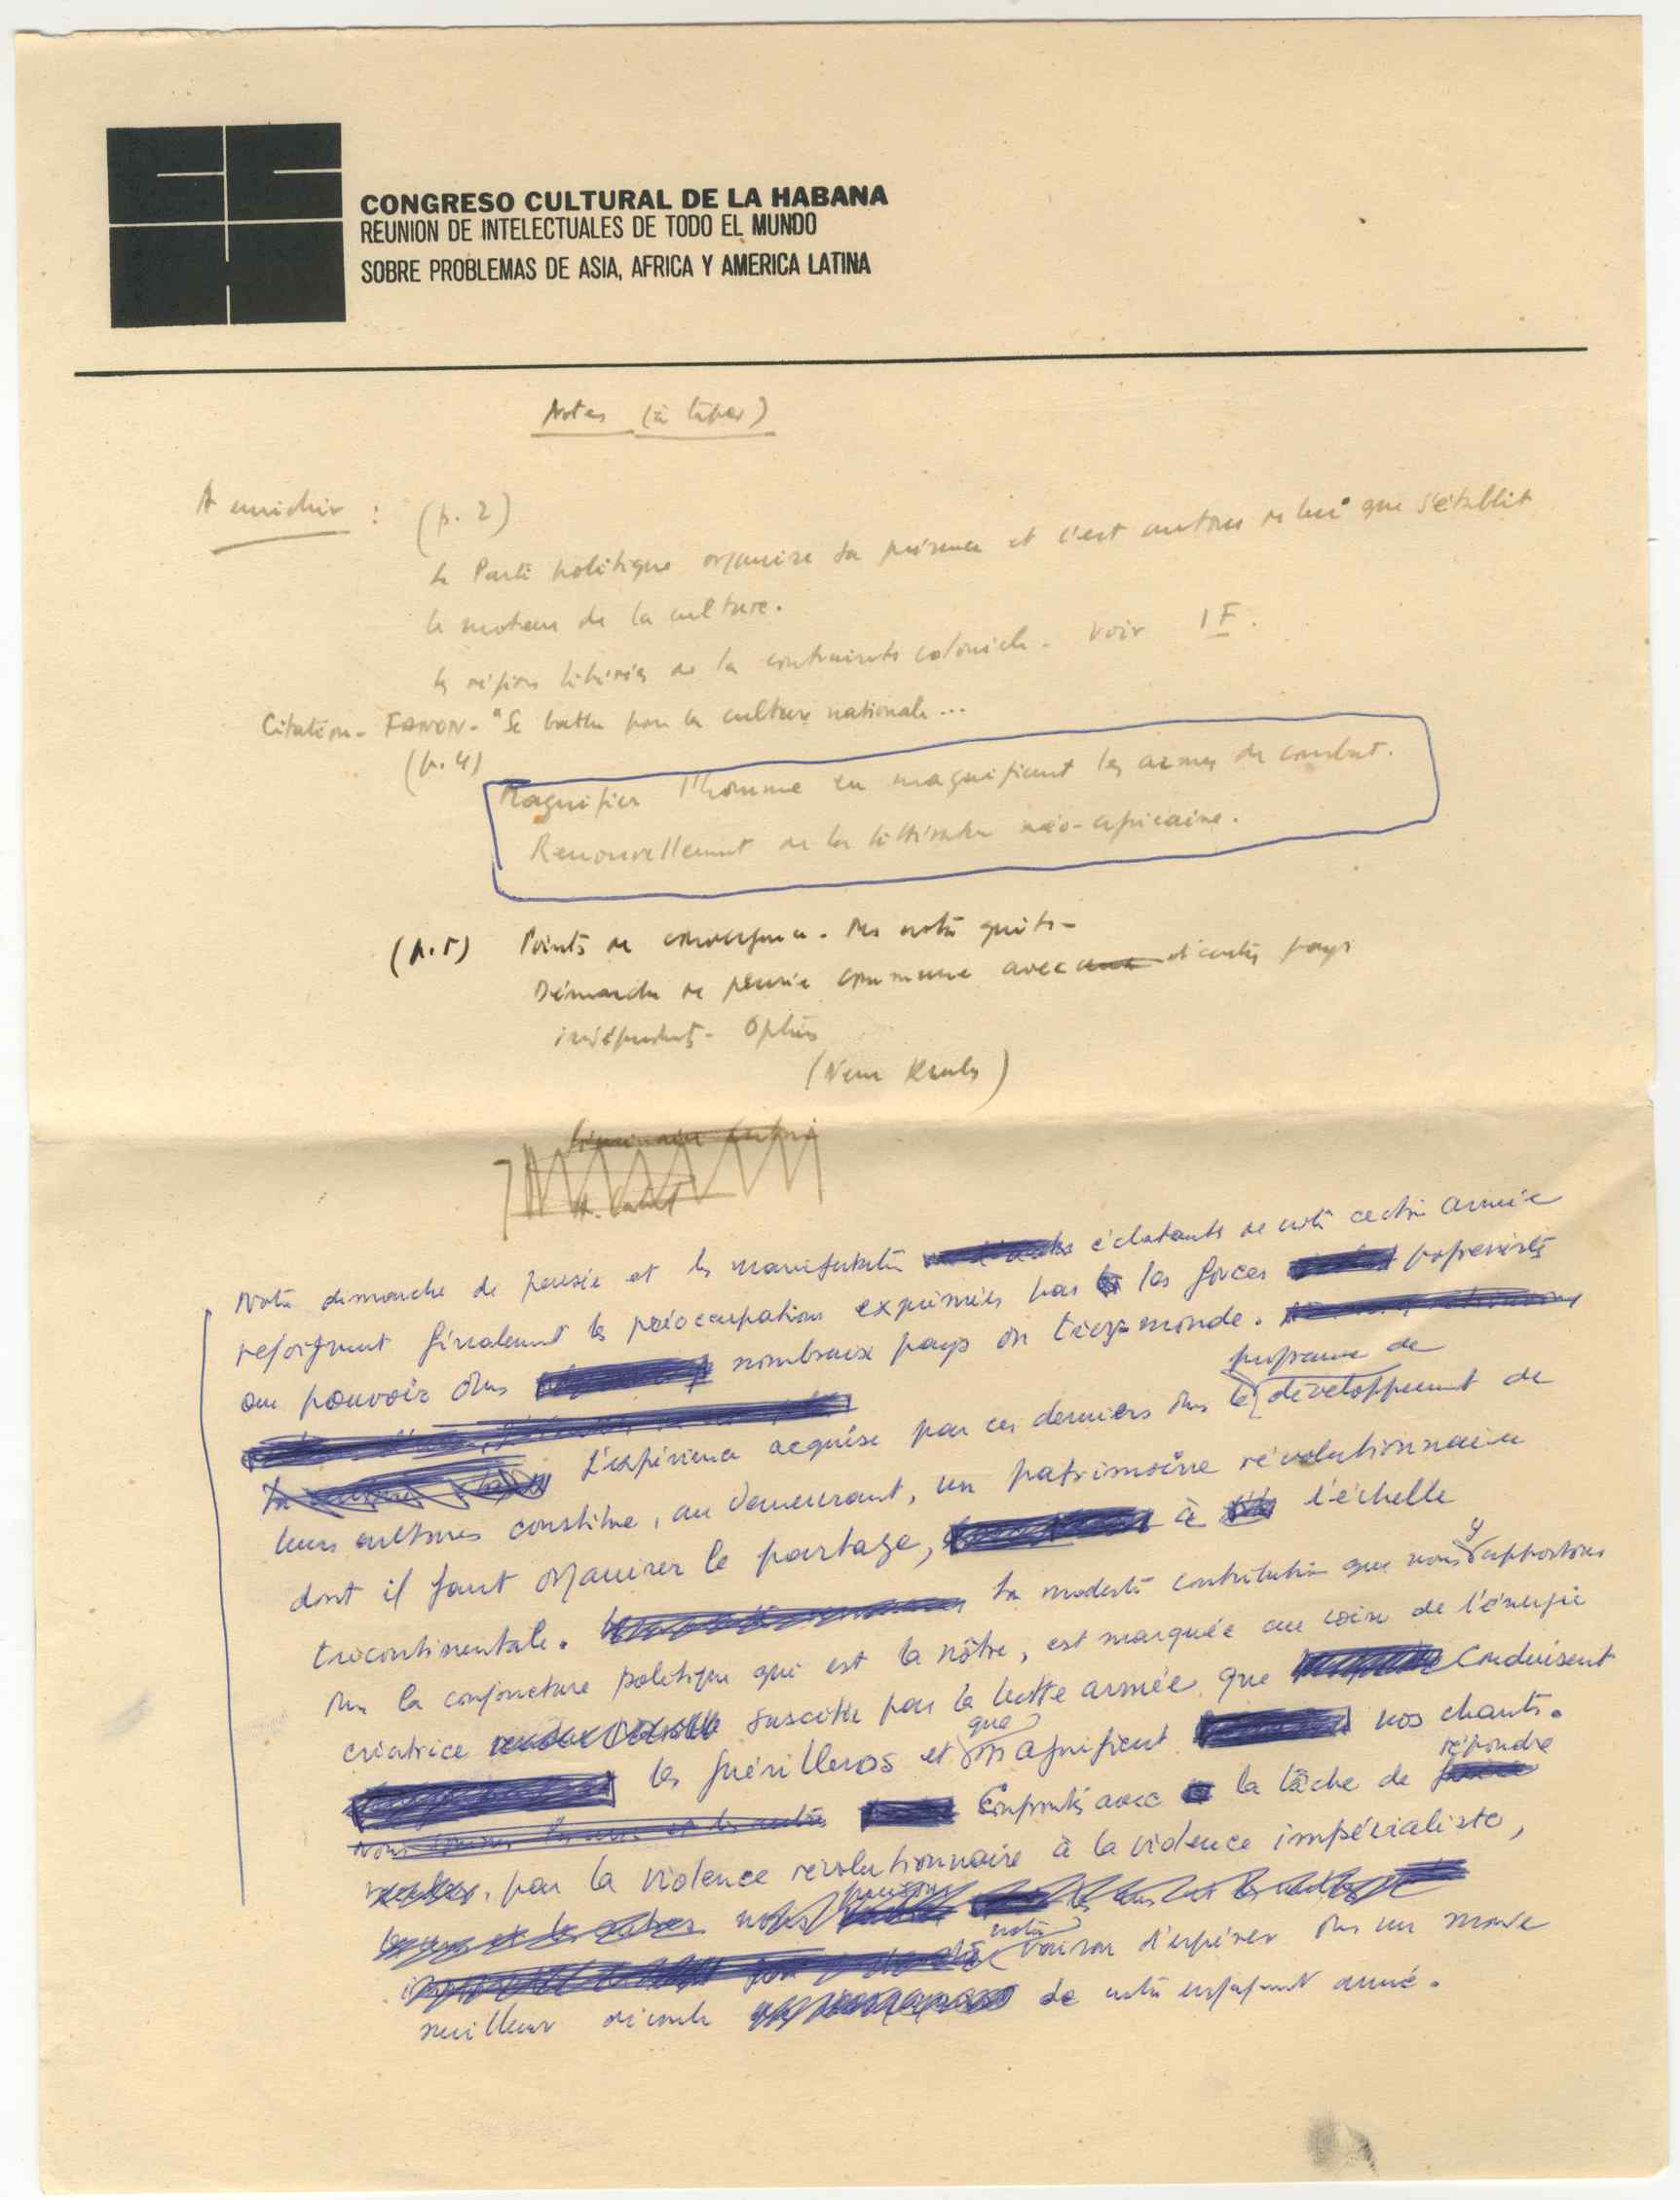 CONGRESO CULTURAL DE LA HABANA
REUNION DE INTELECTUALES DE TODO EL MUNDO
SOBRE PROBLEMAS DE ASIA, AFRICA Y AMERICA LATINA
Notes (à taper)
A enrichir : (p. 2)
Le Parti politique organise sa présence et c'est autour de lui que s'établit
le moteur de la culture.
les régions libérées de la contrainte coloniale - Voir 1 F.
Citation - FANON - "Se battre pour la culture nationale...
(p. 4)
Magnifier l'homme en magnifiant les armes de combat.
Renouvellement de la littérature néo-africaine.
(p. 5) Points de convergence -
Démarche de pensée commune avec d'autres pays
indépendants -
Notre démarche de pensée et les manifestations éclatantes de notre action armée
rejoignent finalement les préoccupations exprimées par les forces progressistes
au pouvoir dans nombreux pays du tiers-monde.
programme de
L'expérience acquise par ces derniers dans le développement de
leurs cultures constitue, au demeurant, un patrimoine révolutionnaire
dont il faut organiser le partage, à l'échelle
tricontinentale. La modeste contribution que nous y apportons
dans la conjoncture politique qui est la nôtre, est marquée au coin de l'énergie
créatrice suscitée par la lutte armée que conduisent
les guérilleros et que magnifient nos chants.
répondre
Confrontés avec la tâche de
par la violence révolutionnaire à la violence impérialiste,
notre raison d'espérer dans un monde
meilleur découle de notre engagement armé.